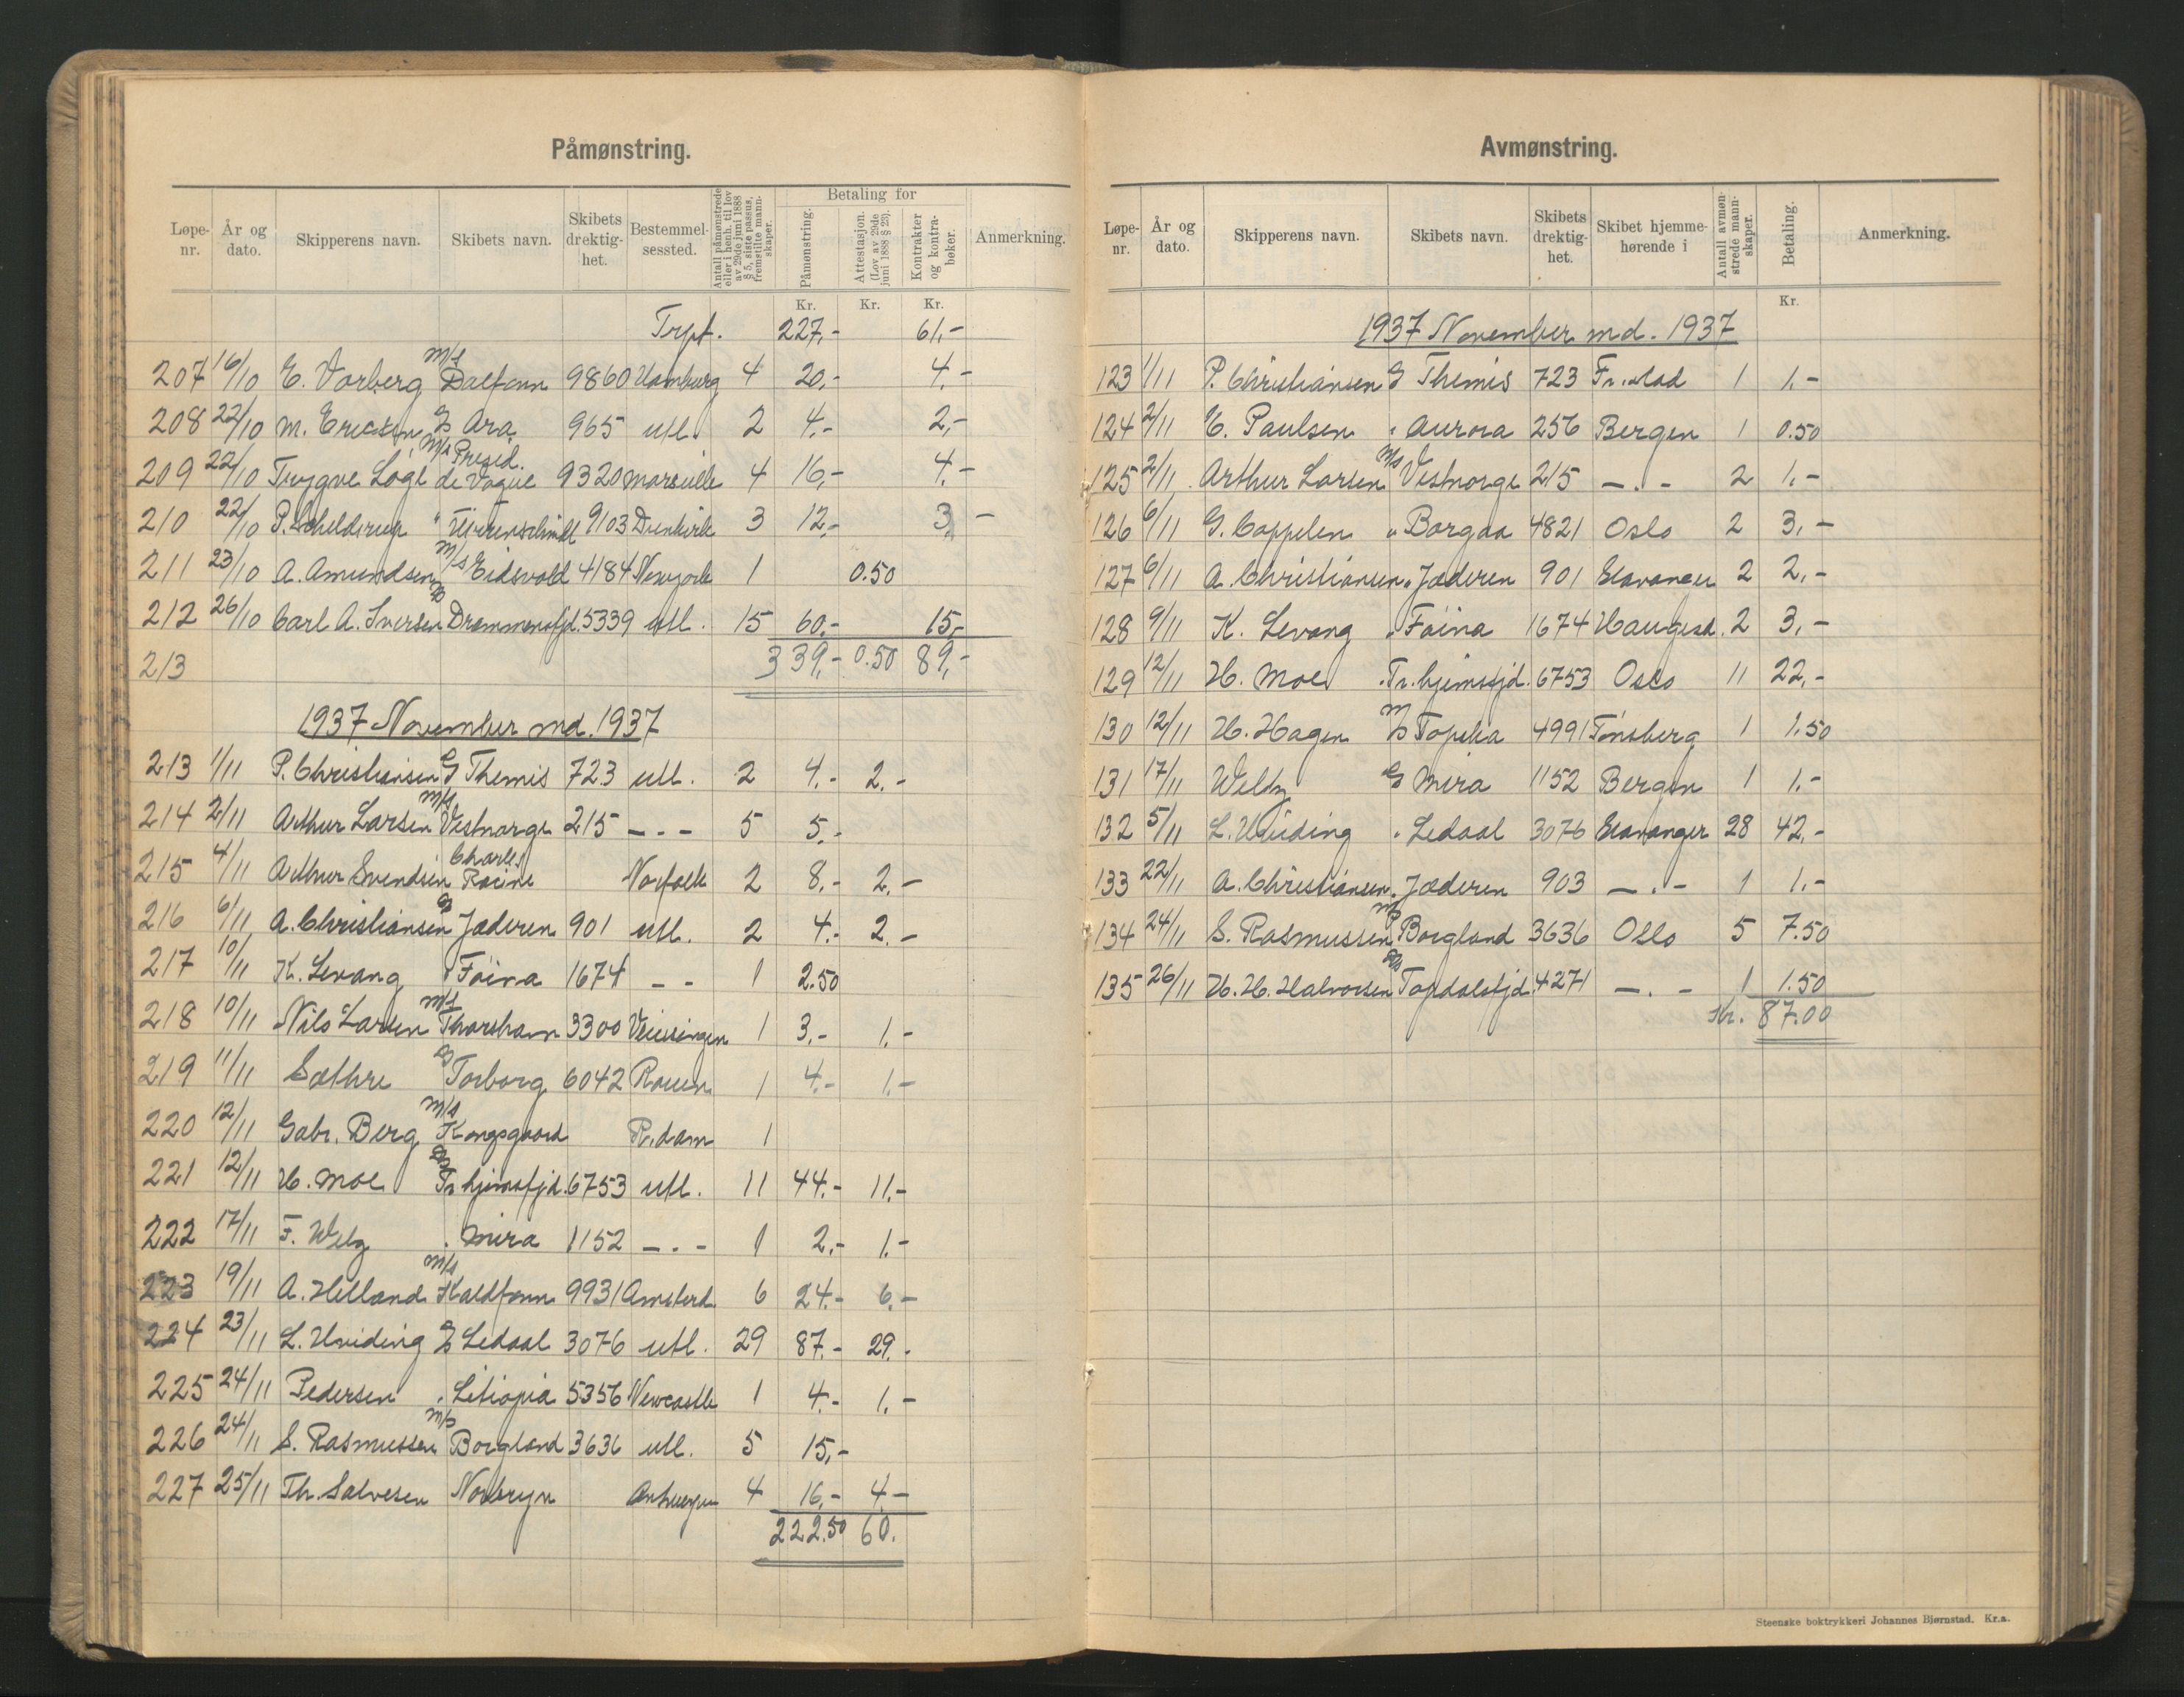 Påmønstring.
Løpe-nr. År og dato. Skipperens navn. Skibets navn. Skibets drektig-het. Bestemmel-sessted. Antall påmønstrede eller i henh. til lov av 29de juni 1888 § 5, siste passus, fremstilte mann-skaper. Betaling for Påmønstring. Attestasjon. (Lov av 29de juni 1888 § 23). Kontrakter og kontra-bøker. Anmerkning.
Kr. Kr. Kr.
Trpt. 227,- 61,-
207 16/10 E. Vorberg M/s Dalfonn 9860 Hamburg 4 20,- 4,-
208 22/10 M. Ericksen Ara 965 utl. 2 4,- 2,-
209 22/10 Trygve Loge M/s Presid. de Vogue 9320 Marseille 4 16,- 4,-
210 22/10 P. Schelderup " 9103 Dunkirk 3 12,- 3,-
211 23/10 A. Amundsen M/s Eidsvold 4184 Newyork 1 0.50
212 26/10 Carl A. Iversen Drammensfjd. 5339 utl. 15 60,- 15,-
213 339,- 0.50 89,-
1937 November md. 1937
213 1/11 P. Christiansen Themis 723 utl. 2 4.- 2.-
214 2/11 Arthur Larsen M/s Vestnorge 215 -.- 5 5.-
215 4/11 Arthur Svendsen Charles Racine Norfolk 2 8,- 2,-
216 6/11 A. Christiansen Jæderen 901 utl. 2 4.- 2.-
217 10/11 K. Levang " Fóina 1674 - - 1 2.50
218 10/11 Nils Larsen M/s Thorshavn 3300 1 3.- 1.-
219 11/11 Sæthre Torborg 6042 Rouen 1 4.- 1.-
220 12/11 Gabr. Berg M/s Kongsgaard R.dam 1
221 12/11 H. Moe Tr.hjemsfjd. 6753 utl. 11 44.- 11.-
222 17/11 F. Welz . Mira 1152 -.- 1 2.- 1.-
223 19/11 A. Helland M/s Kaldfonn 9931 Amsterd. 6 24.- 6.-
224 23/11 L. Hviding Ledaal 3076 utl. 29 87.- 29.-
225 24/11 Pedersen . 5356 Newcastle 1 4.- 1.-
226 24/11 S. Rasmussen M/s Borgland 3636 utl. 5 15,-
227 25/11 Th. Salvesen Norbryn Antwerpen 4 16,- 4-
222.50 60.
Avmønstring.
Løpe-nr. År og dato. Skipperens navn. Skibets navn. Skibets drektig-het. Skibet hjemme-hørende i Antall avmøn-strede mann-skaper. Betaling. Anmerkning.
Kr.
1937 November md. 1937
123 1/11 P. Christiansen Themis 723 Fr.stad 1 1.-
124 2/11 E. Paulsen . Aurora 256 Bergen 1 0.50
125 2/11 Arthur Larsen M/s Vestnorge 215 -.- 2 1.-
126 6/11 G. Coppelen " Borgaa 4821 Oslo 2 3,-
127 6/11 A. Christiansen " Jæderen 901 Stavanger 2 2,-
128 9/11 K. Levang " Fóina 1674 Haugesd. 2 3,-
129 12/11 H. Moe . Tr.hjemsfjd. 6753 Oslo 11 22,-
130 12/11 H. Hagen M/s Topeka 4991 Tønsberg 1 1.50
131 17/11 Welz Mira 1152 Bergen 1 1.-
132 5/11 L. Hviding . Ledaal 3076 Stavanger 28 42.-
133 22/11 A. Christiansen . Jæderen 903 -.- 1 1.-
134 24/11 S. Rasmussen M/s Borgland 3636 Oslo 5 7.50
135 26/11 H. H. Halvorsen Topdalsfjd. 4271 -.- 1 1.50
Kr. 87.00
Steenske boktrykkeri Johannes Bjørnstad. Kr.a.